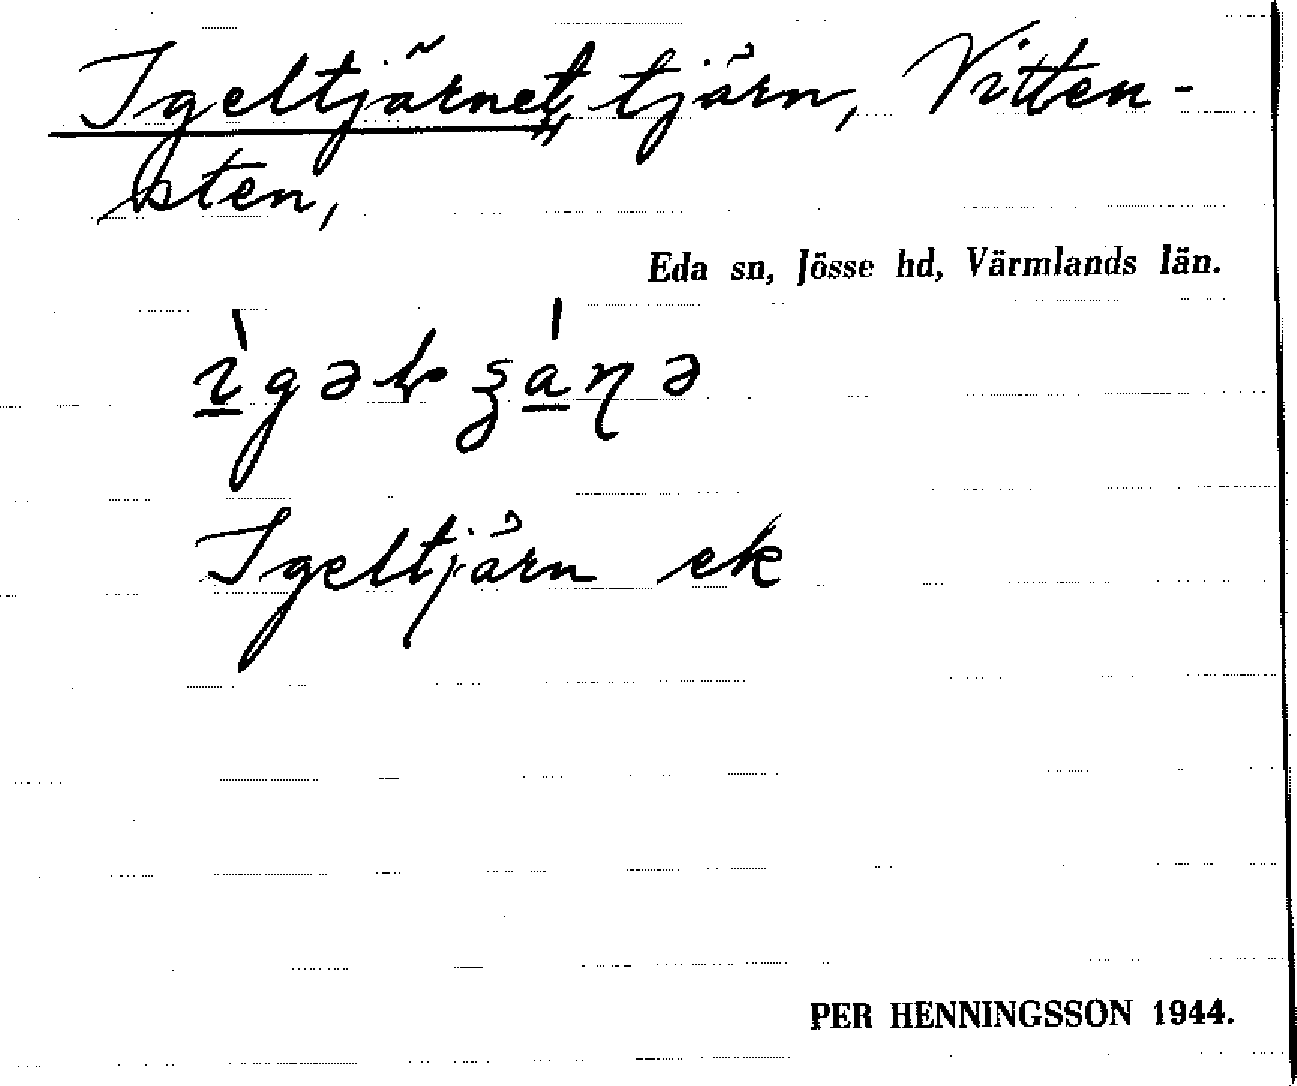 Igeltjärnet, tjärn, Vitten-
sten,
Eda sn, Jösse hd, Värmlands län.
Igeltjärn ek
PER HENNINGSSON 1944.